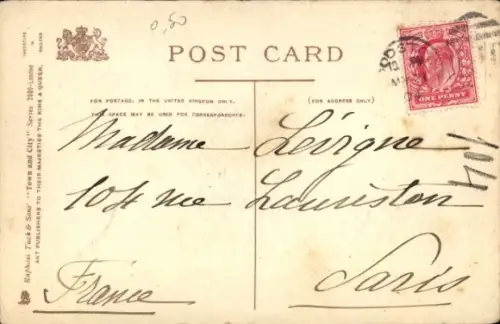 0,50
POST CARD
FOR POSTAGE, IN THE UNITED KINGDOM ONLY,
THIS SPACE MAY BE USED FOR CORRESPONDENCE.
(FOR ADDRESS ONLY.)
ONE PENNY
Madame Lévigne
104 rue Lauriston
Paris
France
1044
Raphael Tuck & Sons' "Town and City" Series 2010—London
ART PUBLISHERS TO THEIR MAJESTIES THE KING & QUEEN.